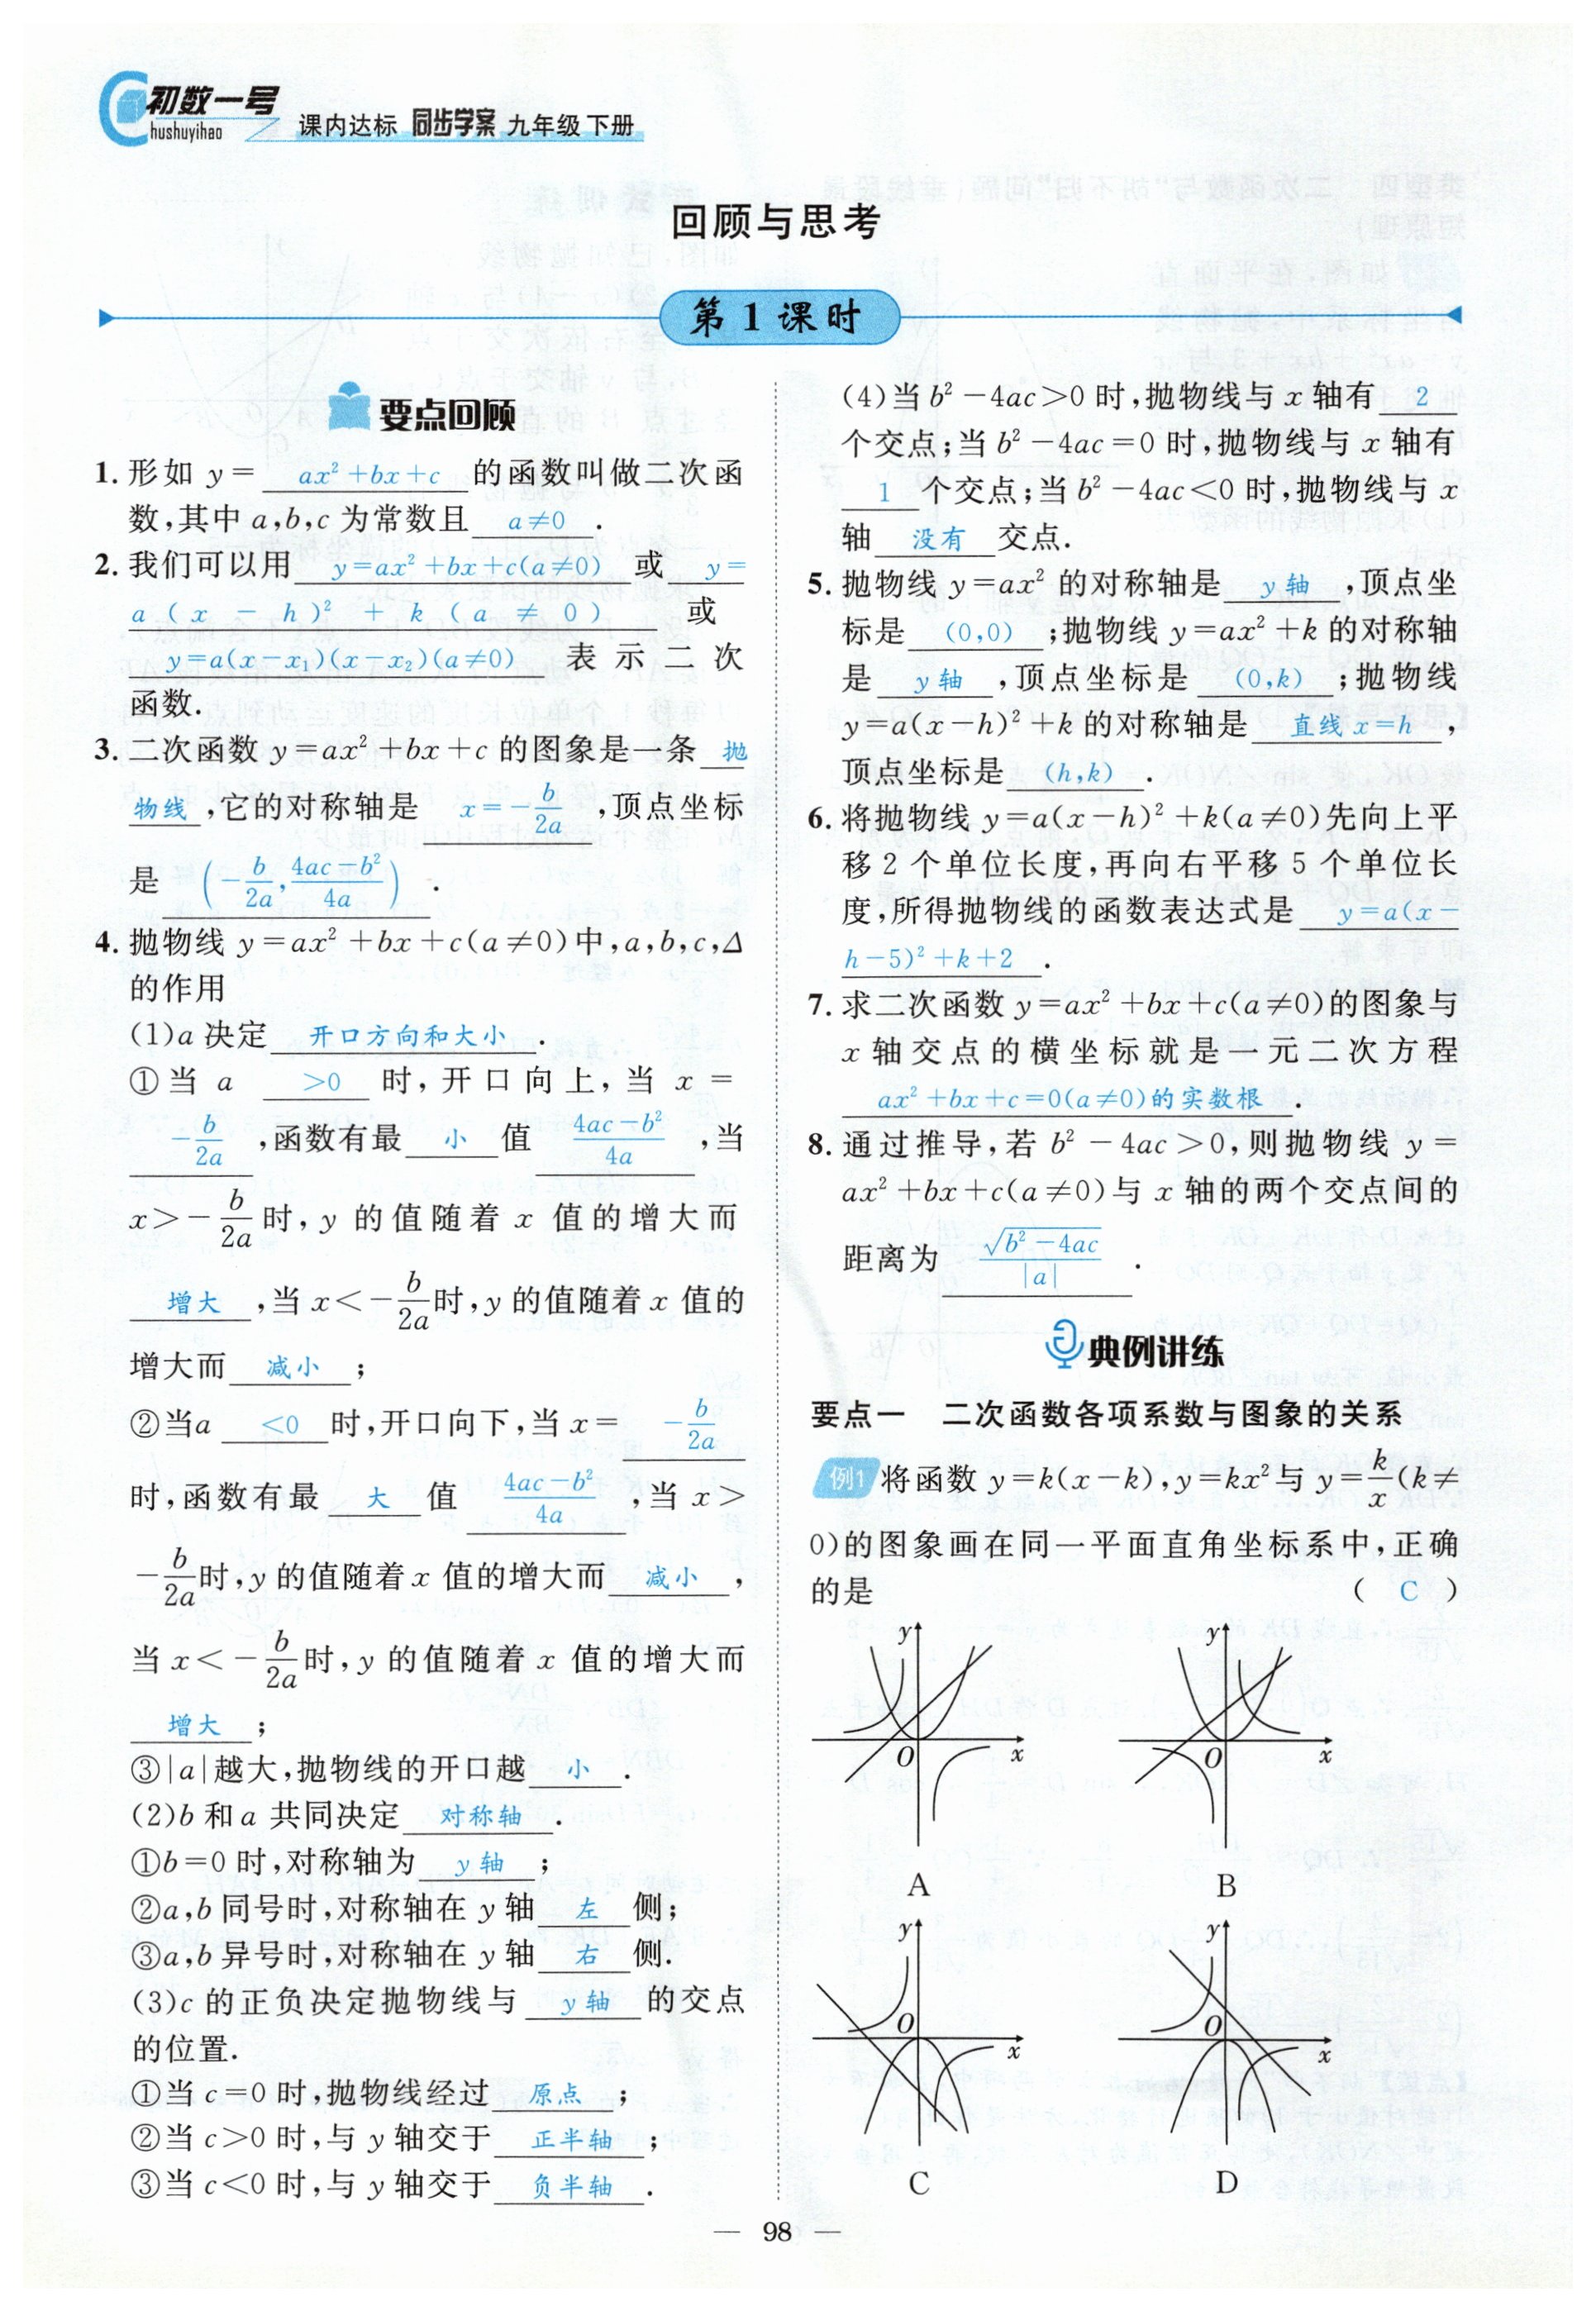 初数一号
hushuyihao
课内达标 同步学案 九年级 下册
回顾与思考
第1课时
要点回顾
1. 形如 y= ax²+bx+c 的函数叫做二次函
数,其中 a,b,c 为常数且 a≠0 .
2. 我们可以用 y=ax²+bx+c(a≠0) 或 y=
a(x-h)²+k(a≠0) 或
y=a(x-x₁)(x-x₂)(a≠0) 表示二次
函数.
3. 二次函数 y=ax²+bx+c 的图象是一条 抛
物线 ,它的对称轴是 x=-b/2a ,顶点坐标
是 (-b/2a, (4ac-b²)/4a) .
4. 抛物线 y=ax²+bx+c(a≠0)中,a,b,c,Δ
的作用
(1)a 决定 开口方向和大小 .
①当 a >0 时,开口向上,当 x=
-b/2a ,函数有最 小 值 (4ac-b²)/4a ,当
x>-b/2a 时,y 的值随着 x 值的增大而
增大 ,当 x<-b/2a 时,y 的值随着 x 值的
增大而 减小 ;
②当a <0 时,开口向下,当 x= -b/2a
时,函数有最 大 值 (4ac-b²)/4a ,当 x>
-b/2a 时,y 的值随着 x 值的增大而 减小 ,
当 x<-b/2a 时,y 的值随着 x 值的增大而
增大 ;
③|a|越大,抛物线的开口越 小 .
(2)b 和 a 共同决定 对称轴 .
①b=0 时,对称轴为 y 轴 ;
②a,b 同号时,对称轴在 y 轴 左 侧;
③a,b 异号时,对称轴在 y 轴 右 侧.
(3)c 的正负决定抛物线与 y 轴 的交点
的位置.
①当 c=0 时,抛物线经过 原点 ;
②当 c>0 时,与 y 轴交于 正半轴 ;
③当 c<0 时,与 y 轴交于 负半轴 .
(4)当 b²-4ac>0 时,抛物线与 x 轴有 2
个交点;当 b²-4ac=0 时,抛物线与 x 轴有
1 个交点;当 b²-4ac<0 时,抛物线与 x
轴 没有 交点.
5. 抛物线 y=ax² 的对称轴是 y 轴 ,顶点坐
标是 (0,0) ;抛物线 y=ax²+k 的对称轴
是 y 轴 ,顶点坐标是 (0,k) ;抛物线
y=a(x-h)²+k 的对称轴是 直线 x=h ,
顶点坐标是 (h,k) .
6. 将抛物线 y=a(x-h)²+k(a≠0)先向上平
移 2 个单位长度,再向右平移 5 个单位长
度,所得抛物线的函数表达式是 y=a(x-
h-5)²+k+2 .
7. 求二次函数 y=ax²+bx+c(a≠0)的图象与
x 轴交点的横坐标就是一元二次方程
ax²+bx+c=0(a≠0)的实数根 .
8. 通过推导,若 b²-4ac>0,则抛物线 y=
ax²+bx+c(a≠0)与 x 轴的两个交点间的
距离为 √(b²-4ac)/|a| .
典例讲练
要点一 二次函数各项系数与图象的关系
例1 将函数 y=k(x-k),y=kx²与 y=k/x(k≠
0)的图象画在同一平面直角坐标系中,正确
的是 ( C )
y y
O x O x
A B
y y
O x O x
C D
— 98 —